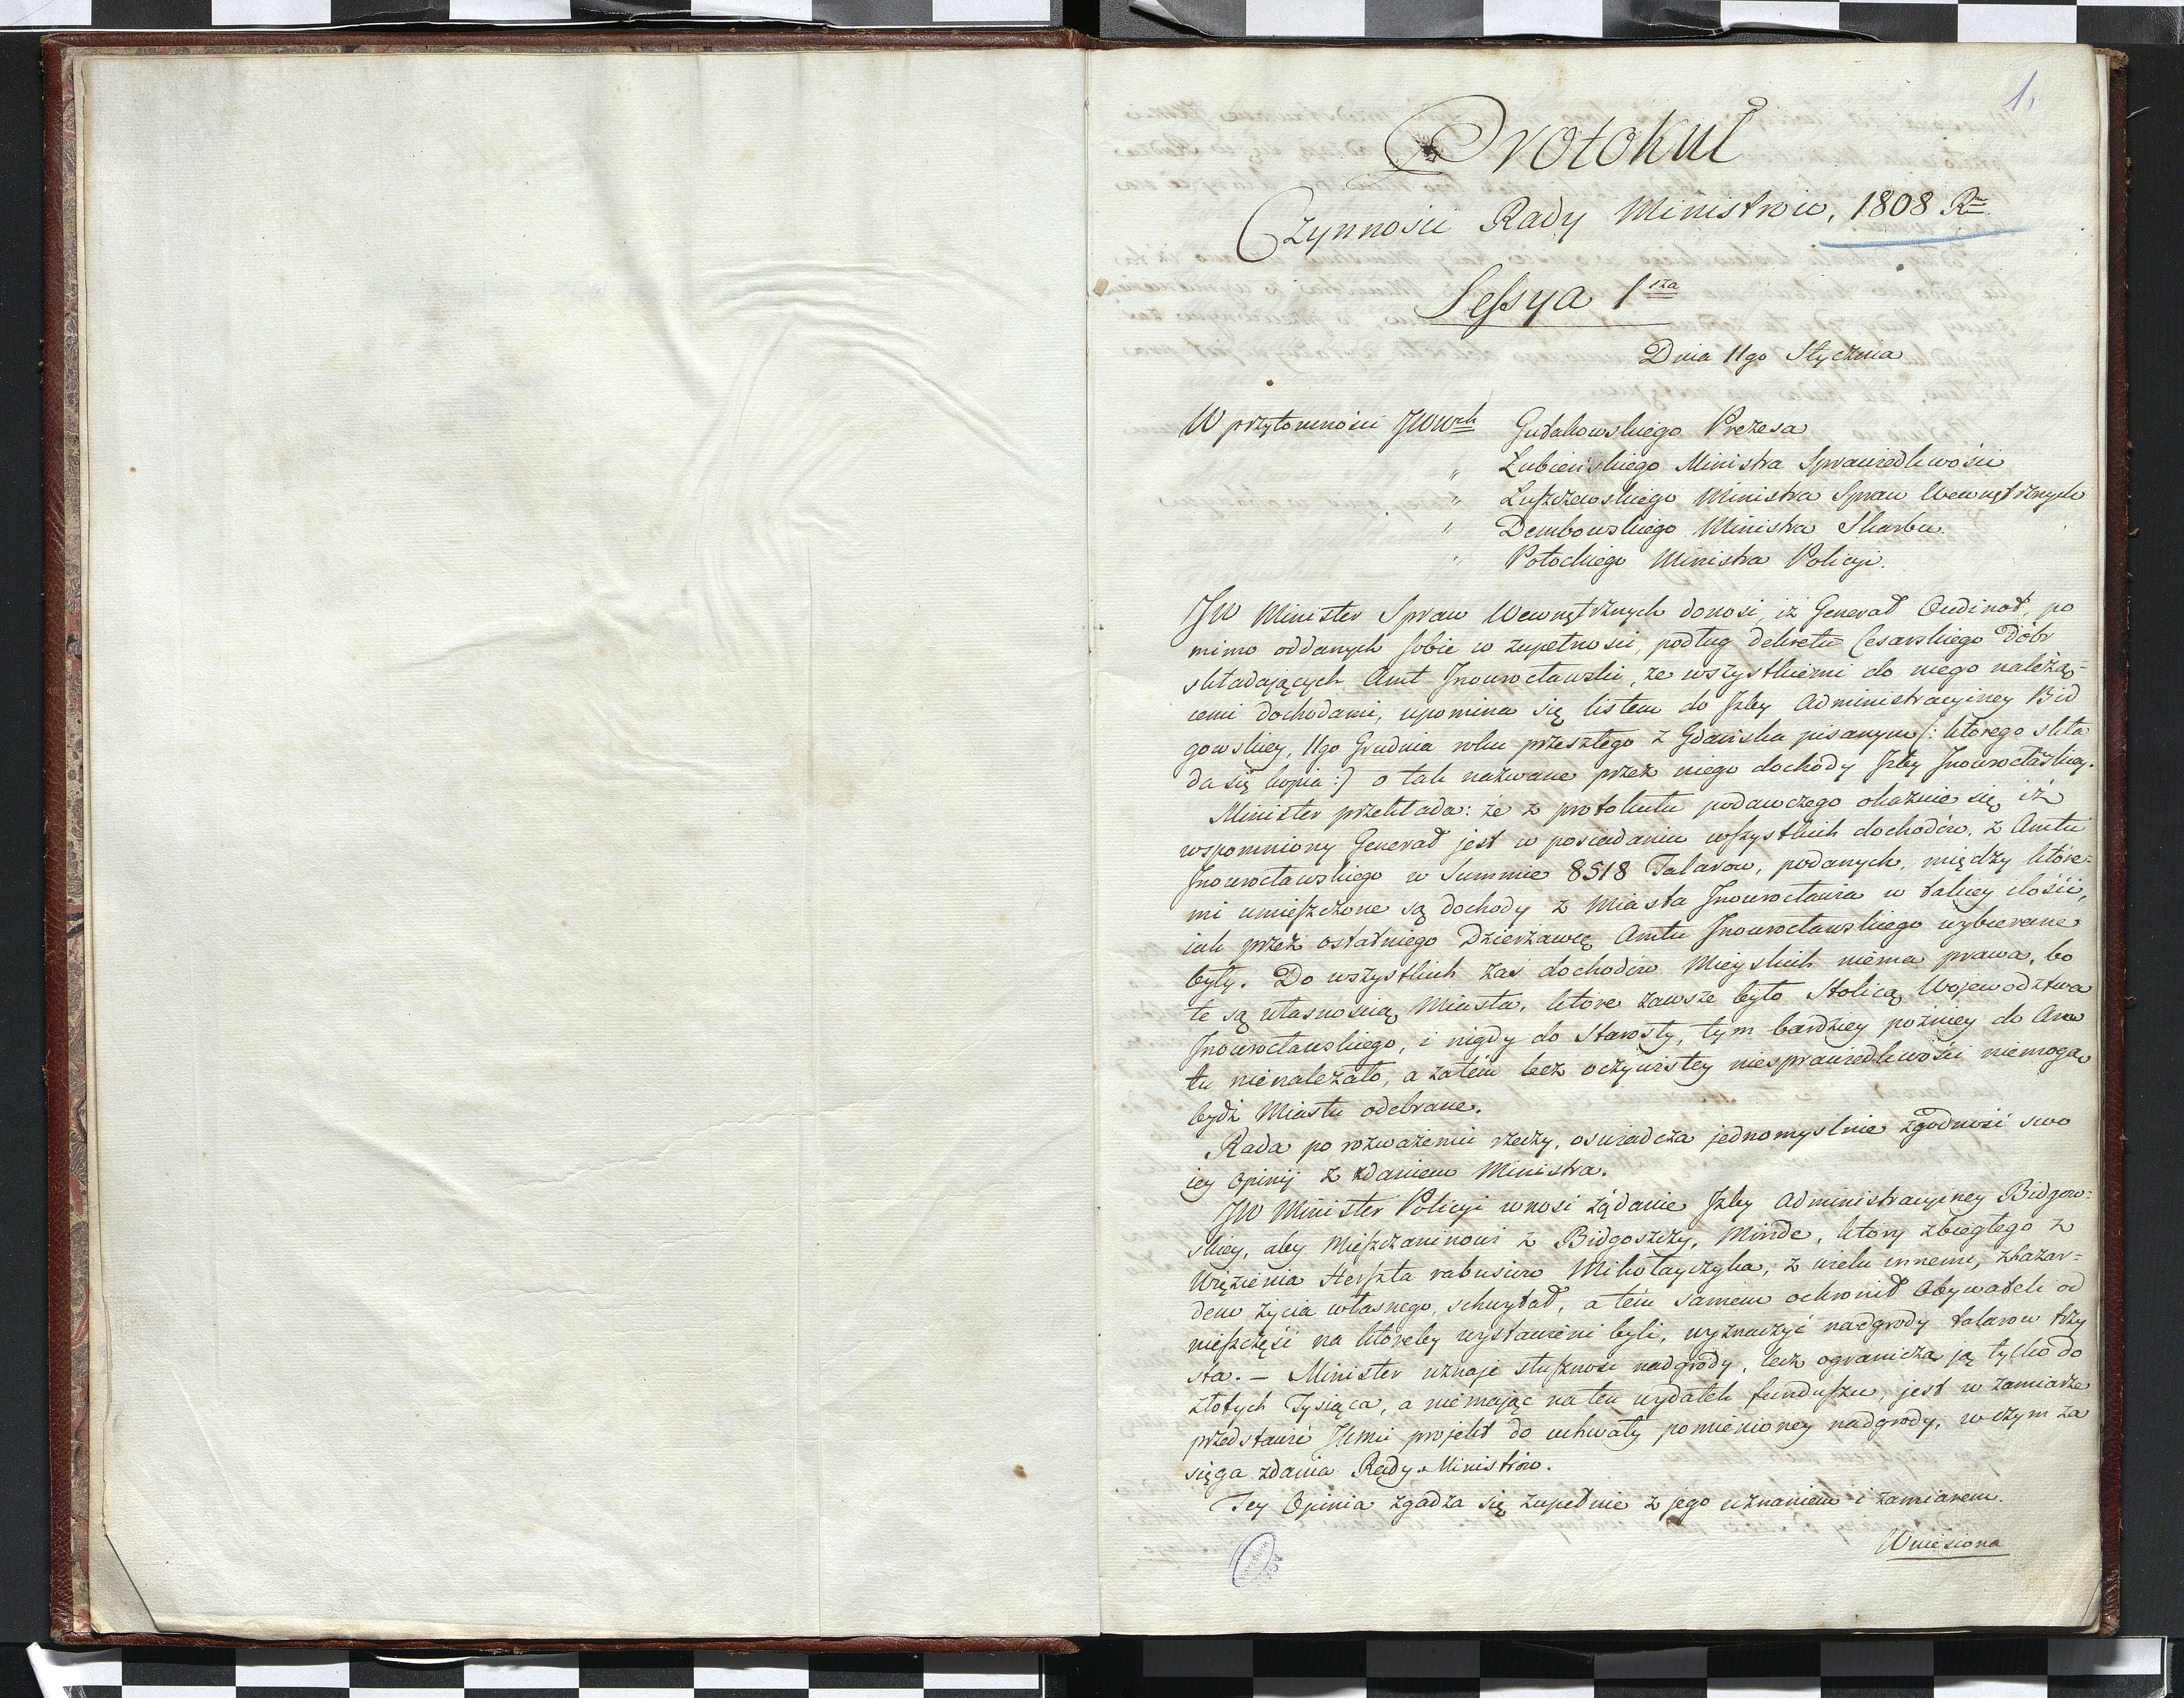 1.
Protokuł
Czynności Rady Ministrów, 1808 Ru
Sessya 1sza
Dnia 11go Stycznia
W przytomności JWWch Gutakowskiego Prezesa
" Łubieńskiego Ministra Sprawiedliwości
" Łuszczewskiego Ministra Spraw Wewnętrznych
" Dembowskiego Ministra Skarbu.
" Potockiego Ministra Policyi.
JW Minister Spraw Wewnętrznych donosi, iż Generał Oudinot, po
mimo oddanych sobie w zupełności, podług dekretu Cesarskiego Dóbr
składających Amt Inowrocławski, ze wszystkiemi do niego należą=
cemi dochodami, upomina się listem do Izby Administracyiney Bid
gowskiey, 11go Grudnia roku przeszłego z Gdańska pisanym (: którego skła
da się kopia :) o tak nazwane przez niego dochody Izby Inowrocławskiey.
Minister przekłada: że z protokułu podawczego okazuie się, iż
wspomniony Generał jest w posiadaniu wszystkich dochodów, z Amtu
Inowrocławskiego w Summie 8518 Talarow, podanych, między które=
mi umieszczone są dochody z Miasta Inowrocławia w takiey ilości,
iak przez ostatniego Dzierżawcę Amtu Inowrocławskiego wybierane
były. Do wszystkich zaś dochodów Mieyskich niema prawa, bo
te są własnością Miasta, które zawsze było Stolicą Województwa
Inowrocławskiego, i nigdy do Starosty, tym bardziey pożniey do Am
tu nienależało, a zatém bez oczywistey niesprawiedliwości niemogą
bydź Miastu odebrane.
Rada po rozważeniu rzeczy, oswiadcza jednomyslnie zgodność swo
iey Opinij z zdaniem Ministra.
JW Minister Policyi wnosi żądanie Izby Administracyiney Bidgow=
skiey, aby Mieszczaninowi z Bidgoszczy, Minde, który zbiegłego z
Więzienia Herszta rabusiów Mikołayczyka, z wielu innemi, z hazar=
dem życia własnego, schwytał, a tém samem ochronił Obywateli od
nieszczęść na któreby wystawieni byli, wyznaczyć nadgrody talarow trzy
sta. — Minister uznaje słuszność nadgrody, lecz ogranicza ją tylko do
złotych Tysiąca, a niemając na ten wydatek funduszu, jest w zamiarze
przedstawić Jkmci projekt do uchwały pomienioney nadgrody, w czym za
sięga zdania Rady Ministrów.
Jey Opinia zgadza się zupełnie z jego uznaniem i zamiarem.
Wniesiona